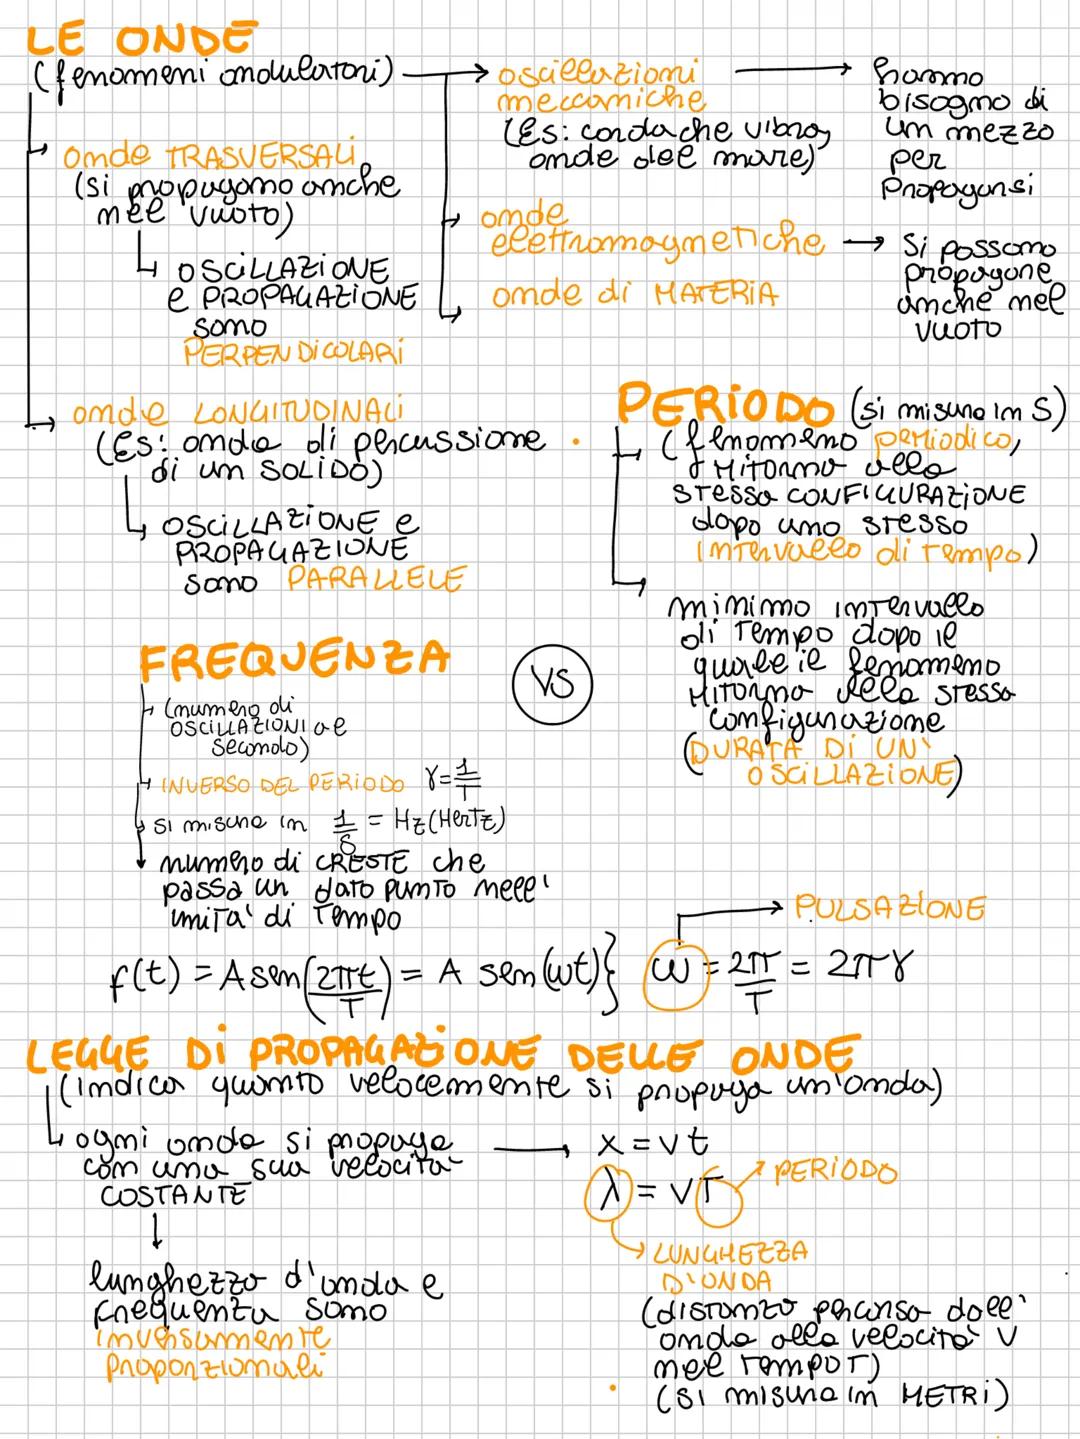 LE ONDE
(fenomeni ondulatori)
oscillazioni
meccaniche
(Es: corda che vibra,
onde del mare)
hanno
bisogno di
un mezzo
per
propagarsi
onde TRASVERSALI
(si propagano anche
nel vuoto)
OSCILLAZIONE
e PROPAGAZIONE
sono
PERPENDICOLARI
onde
elettromagnetiche
si possono
propagare
anche nel
vuoto
onde di MATERIA
onde LONGITUDINALI
(Es: onda di percussione
di un SOLIDO)
OSCILLAZIONE e
PROPAGAZIONE
sono PARALLELE
PERIODO (si misura in S)
(fenomeno periodico,
ritorna alla
stessa CONFIGURAZIONE
dopo uno stesso
intervallo di tempo)
minimo intervallo
di tempo dopo il
quale il fenomeno
ritorna alla stessa
configurazione
(DURATA DI UN'
OSCILLAZIONE)
FREQUENZA
VS
(numero di
OSCILLAZIONI al
secondo)
INVERSO DEL PERIODO γ=1/T
si misura in 1/S = Hz (Hertz)
numero di CRESTE che
passa un dato punto nell'
unita' di tempo
PULSAZIONE
f(t) = A sen(2πt/T) = A sen(ωt)} ω = 2π/T = 2πγ
LEGGE DI PROPAGAZIONE DELLE ONDE
(indica quanto velocemente si propaga un'onda)
ogni onda si propaga
con una sua velocità
COSTANTE
x = vt
λ = vT
PERIODO
LUNGHEZZA
D'ONDA
(distanza percorsa dall'
onda alla velocità V
nel tempo T)
(si misura in METRI)
lunghezza d'onda e
frequenza sono
inversamente
proporzionali